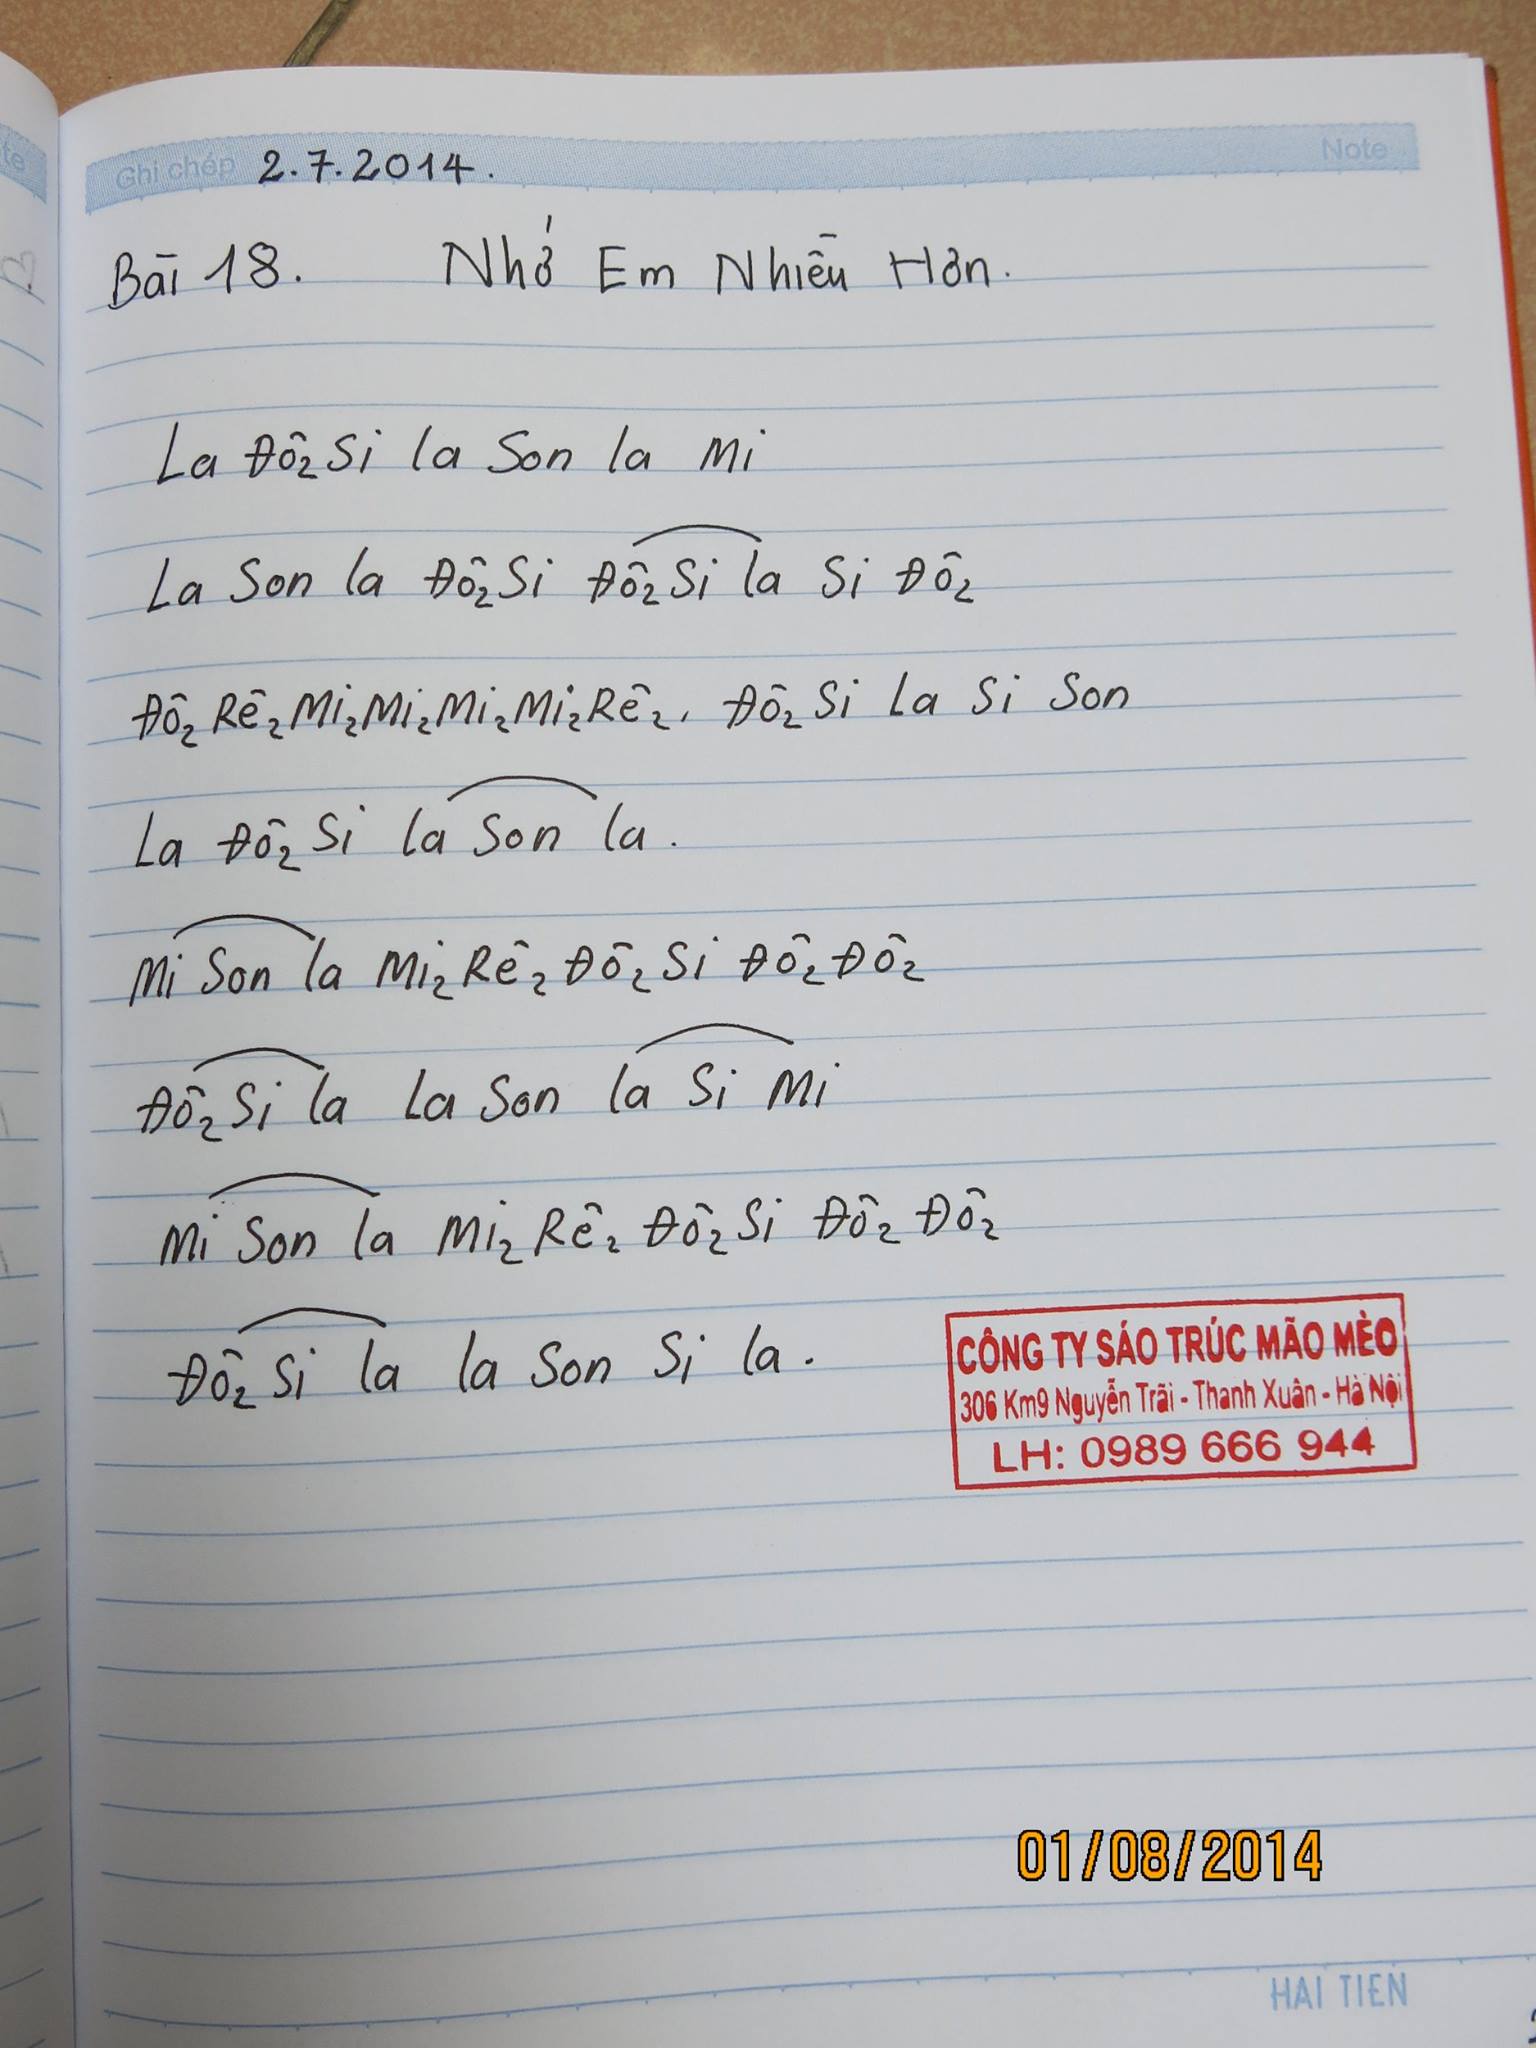 Ghi chép 2.7.2014. Note
Bài 18. Nhớ Em Nhiều Hơn.
La Đô2 Si la Son la Mi
La Son la Đô2 Si Đô2 Si la Si Đô2
Đô2 Rê2 Mi2 Mi2 Mi2 Mi2 Rê2, Đô2 Si La Si Son
La Đô2 Si la Son la.
Mi Son la Mi2 Rê2 Đô2 Si Đô2 Đô2
Đô2 Si la La Son la Si Mi
Mi Son la Mi2 Rê2 Đô2 Si Đô2 Đô2
Đô2 Si la la Son Si la.
CÔNG TY SÁO TRÚC MÃO MÈO
306 Km9 Nguyễn Trãi - Thanh Xuân - Hà Nội
LH: 0989 666 944
01/08/2014
HAI TIEN